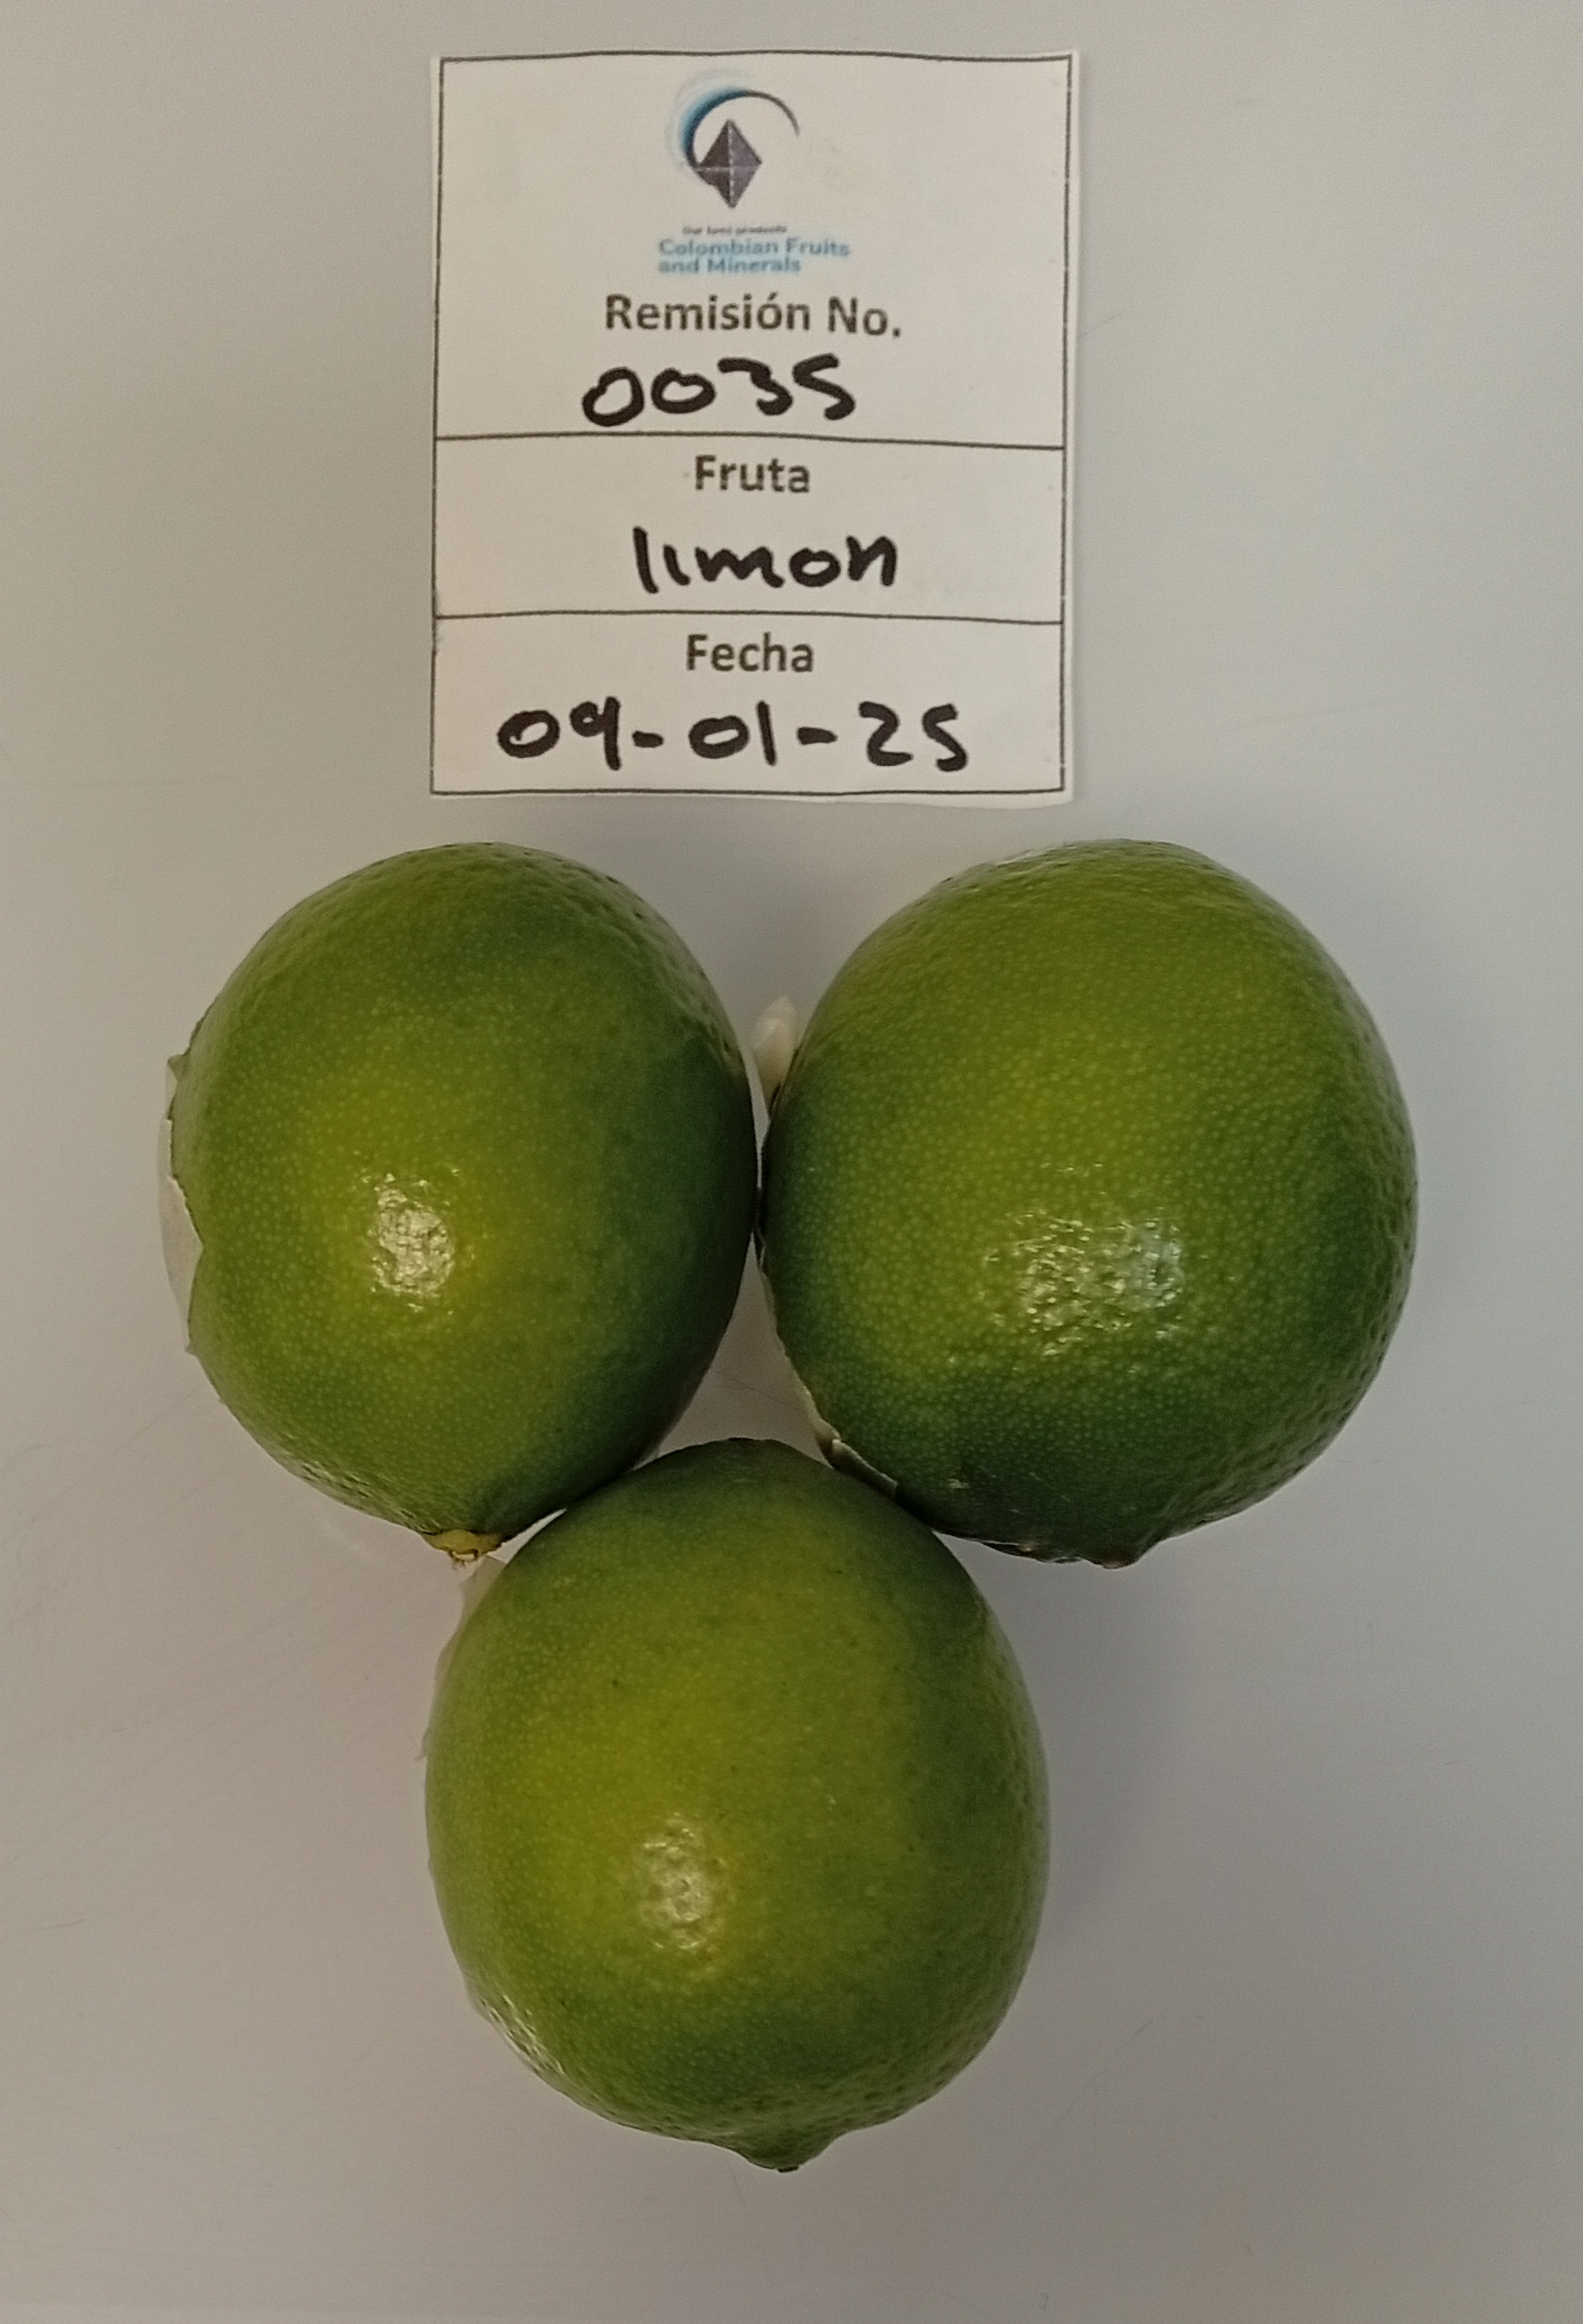 Our best products
Colombian Fruits
and Minerals
Remisión No.
0035
Fruta
limon
Fecha
09-01-25